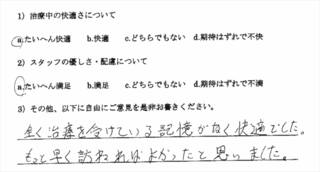 1）治療中の快適さについて
a.たいへん快適　b.快適　c.どちらでもない　d.期待はずれで不快
2）スタッフの優しさ・配慮について
a.たいへん満足　b.満足　c.どちらでもない　d.期待はずれで不満
3）その他、以下に自由にご意見を是非お書きください。
全く治療を受けている記憶がなく快適でした。
もっと早く訪ねればよかったと思いました。